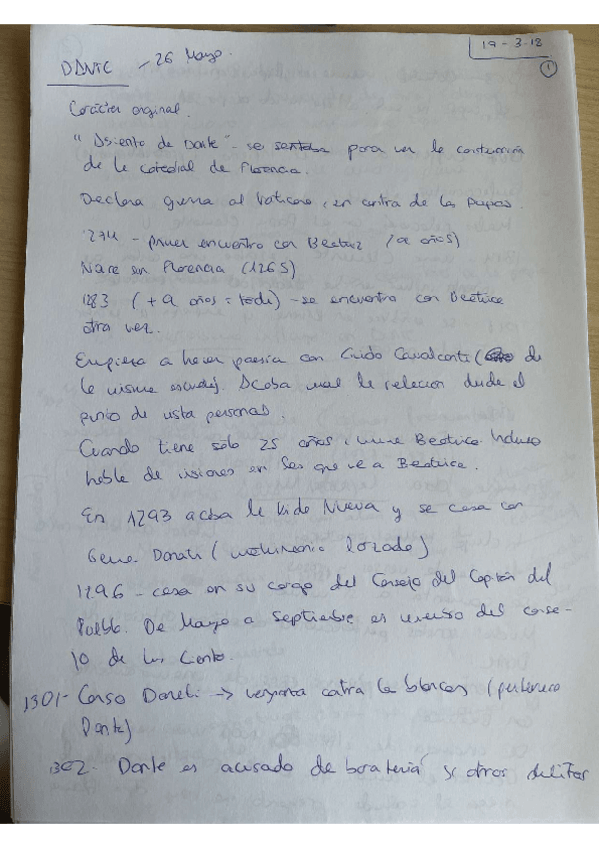 19-3-18
1
DANTE - 26 Mayo.
Carácter original.
"Asiento de Dante" - se sentaba para ver la construcción
de la catedral de Florencia.
Declara guerra al Vaticano, en contra de los Papas.
1274 - primer encuentro con Beatriz (9 años)
Nace en Florencia (1265)
1283 (+9 años: tarde) - se encuentra con Beatrice
otra vez.
Empieza a hacer poesía con Guido Cavalcanti (de
la misma escuela). Acaba mal la relación desde el
punto de vista personal.
Cuando tiene sólo 25 años, muere Beatrice. Incluso
habla de visiones en las que ve a Beatrice.
En 1293 acaba la Vida Nueva y se casa con
Gema Donati (matrimonio forzado)
1296 - cesa en su cargo del Consejo del Capitán del
Pueblo. De Mayo a Septiembre es miembro del conse-
jo de los Ciento.
1301- Corso Donati → venganza contra los blancos (pertenece
Dante)
1302- Dante es acusado de baratería y otros delitos